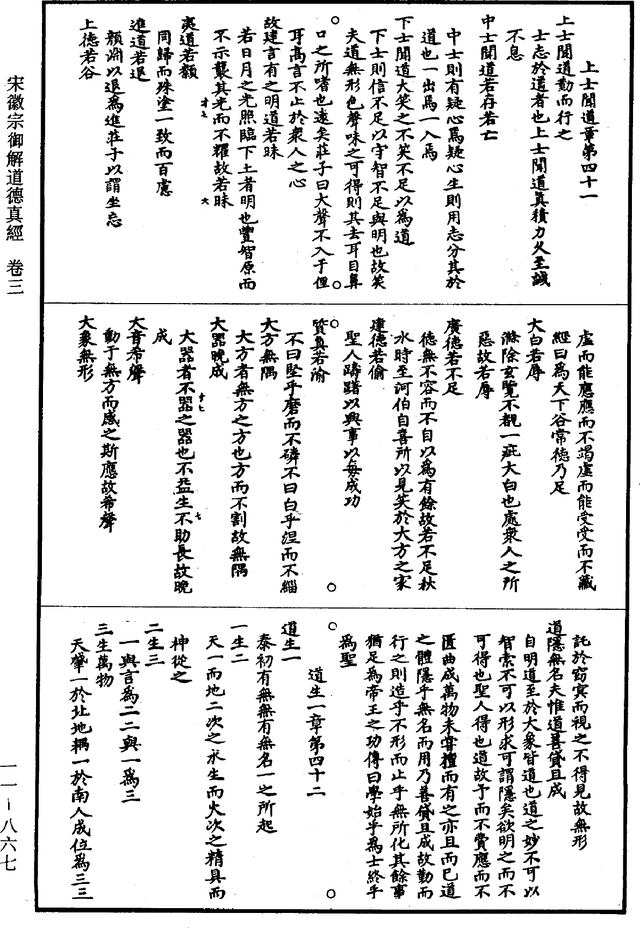 宋徽宗御解道德真經　卷三
上士聞道章第四十一
上士聞道勤而行之
士志於道者也上士聞道真積力久至誠
不息
中士聞道若存若亡
中士則有疑心焉疑心生則用志分其於
道也一出焉一入焉
下士聞道大笑之不笑不足以為道
下士則信不足以守智不足與明也故笑
夫道無形色聲味之可得則其去耳目鼻
口之所嗜也遠矣莊子曰大聲不入于俚
耳高言不止於衆人之心
故建言有之明道若昧
若日月之光照臨下土者明也豐智原而
不示襲其光而不耀故若昧
夷道若纇
同歸而殊塗一致而百慮
進道若退
顏淵以退為進莊子以謂坐忘
上德若谷
虛而能應應而不竭虛而能受受而不藏
經曰為天下谷常德乃足
大白若辱
滌除玄覽不覩一疵大白也處衆人之所
惡故若辱
廣德若不足
德無不容而不自以為有餘故若不足秋
水時至河伯自喜所以見笑於大方之家
建德若偷
聖人躊躇以興事以每成功
質真若渝
不曰堅乎磨而不磷不曰白乎涅而不緇
大方無隅
大方者無方之方也方而不割故無隅
大器晚成
大器者不器之器也不益生不助長故晚
成
大音希聲
動于無方而感之斯應故希聲
大象無形
託於窈冥而視之不得見故無形
道隱無名夫惟道善貸且成
自明道至於大象皆道也道之妙不可以
智索不可以形求可謂隱矣欲明之而不
可得也聖人得也道故予而不費應而不
匱曲成萬物未嘗擅而有之亦且而已道
之體隱乎無名而用乃善貸且成故勤而
行之則造乎不形而止乎無所化其餘事
猶足為帝王之功傳曰學始乎為士終乎
為聖
道生一章第四十二
道生一
泰初有無無有無名一之所起
一生二
天一而地二次之水生而火次之精具而
神從之
二生三
一與言為二二與一為三
三生萬物
天肇一於北地耦一於南人成位為三三
一一－八六七